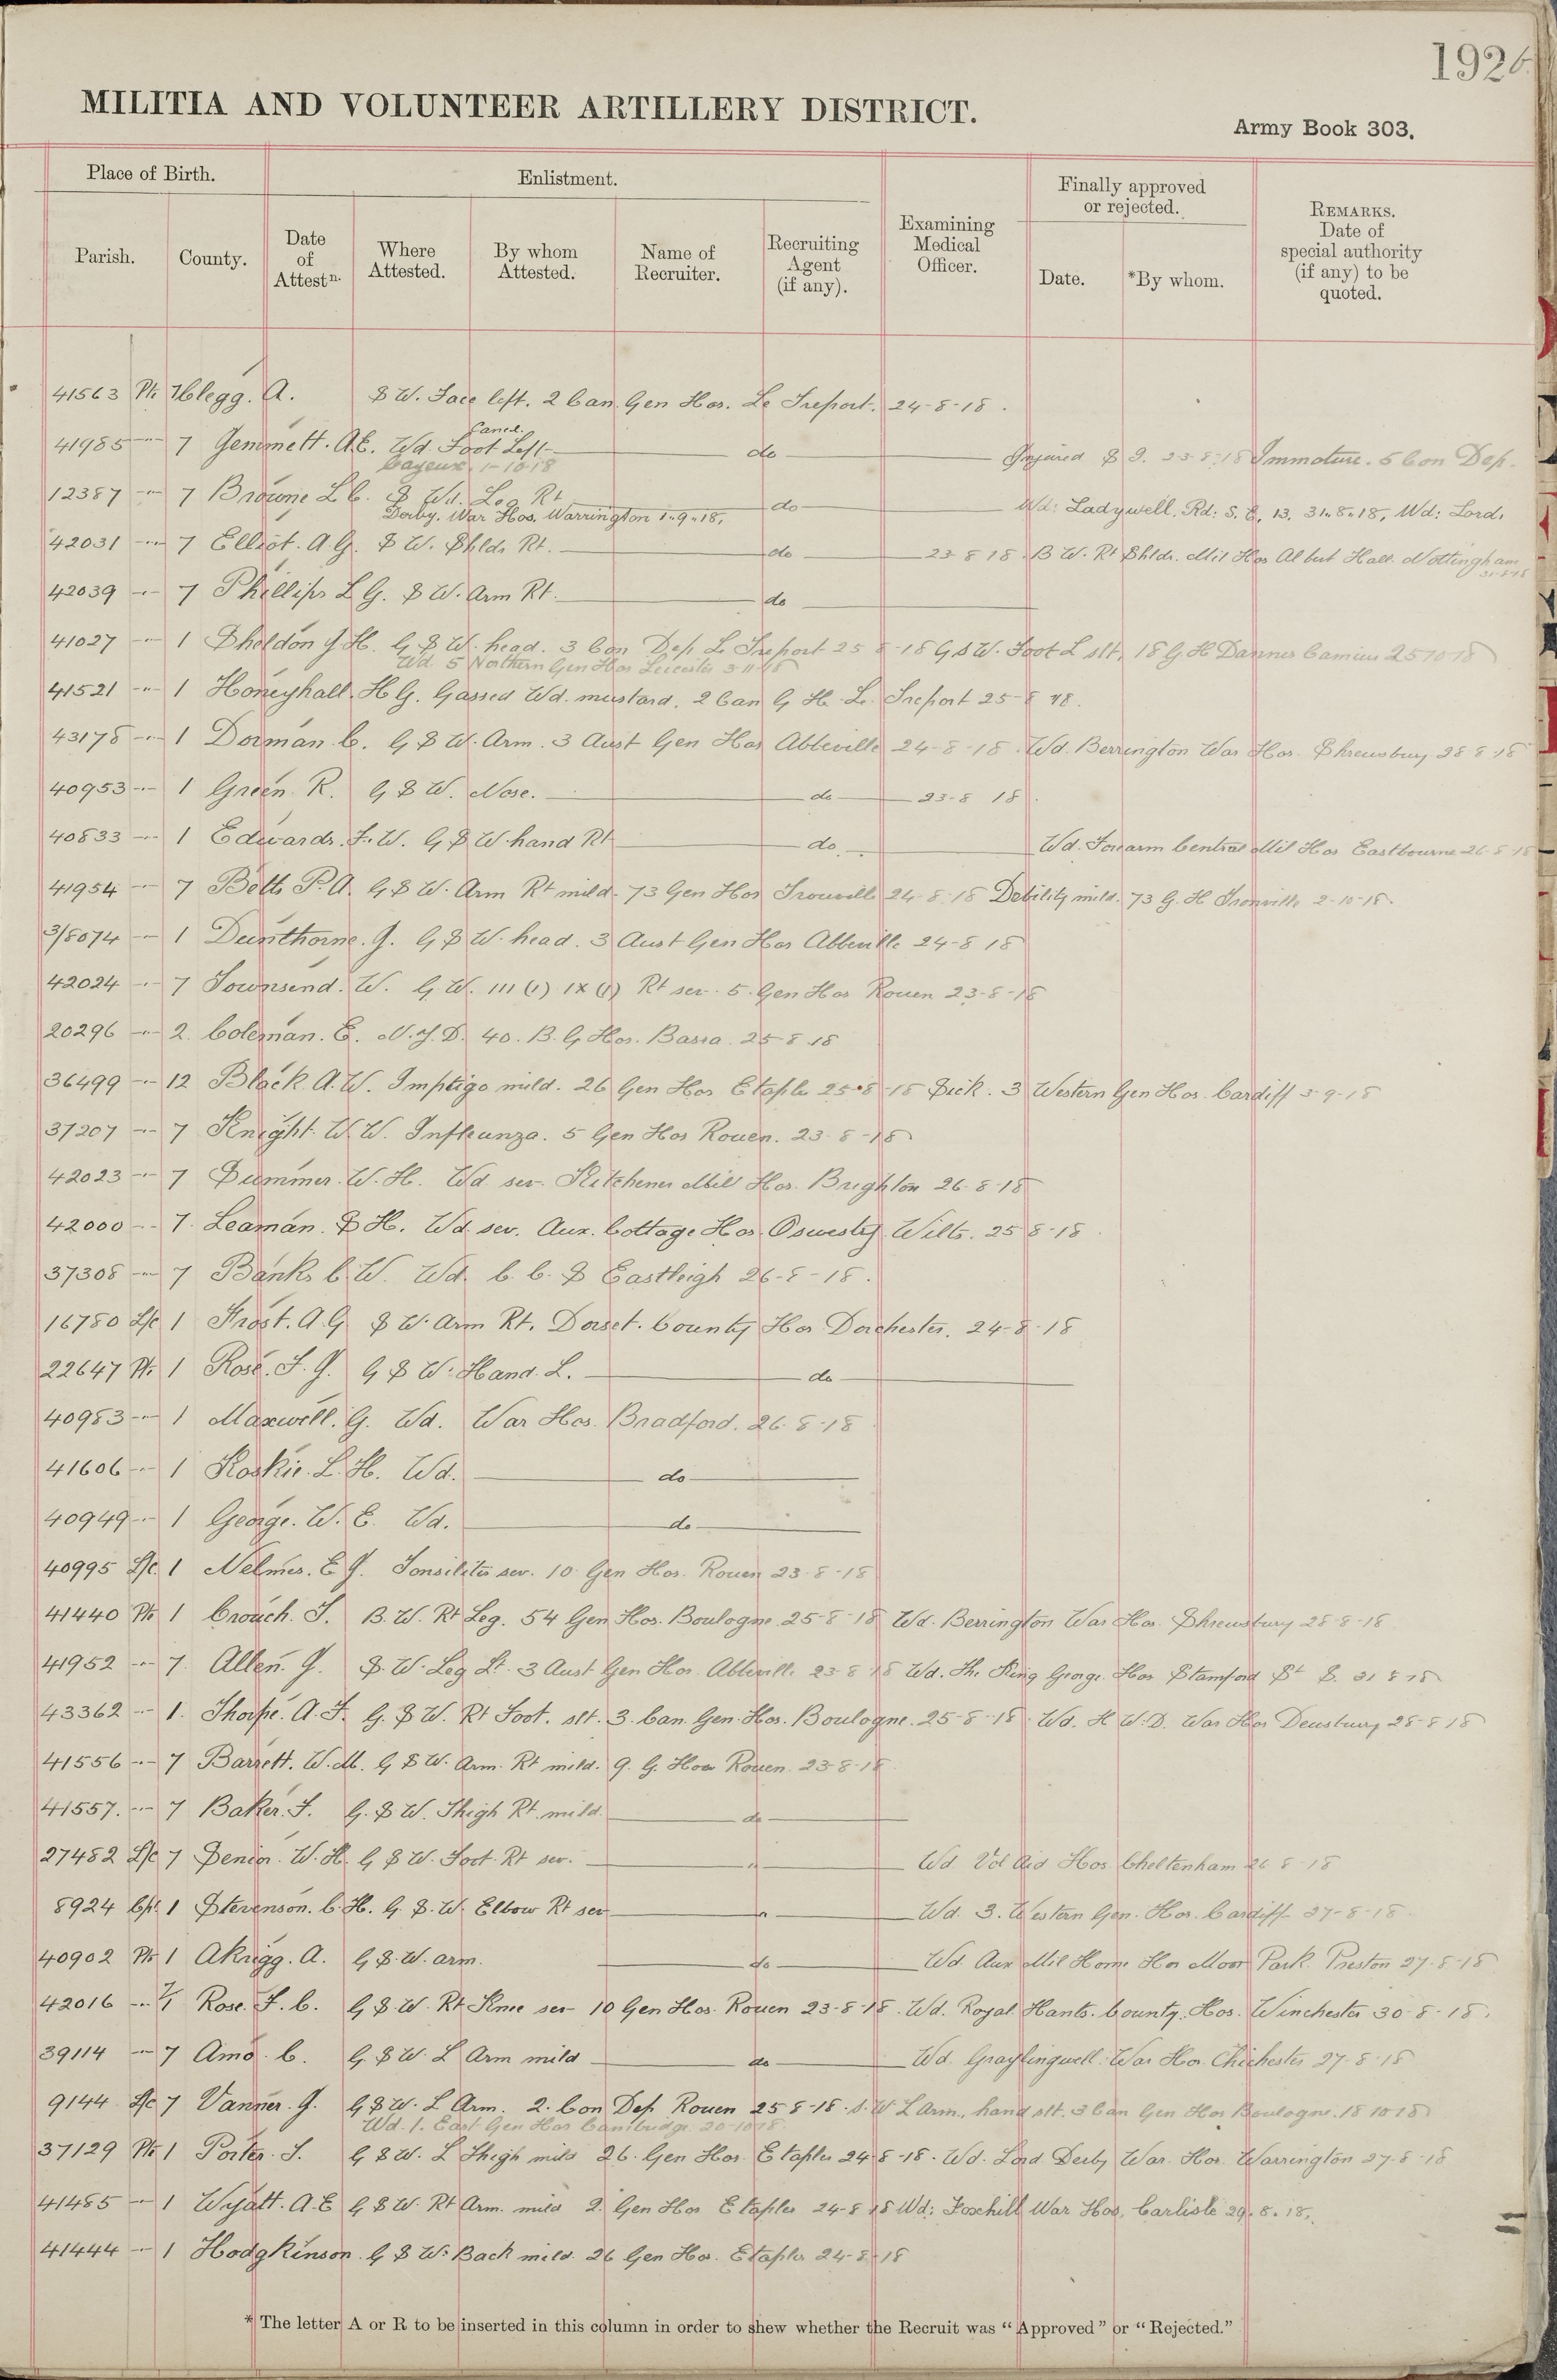 1926
MILITIA AND VOLUNTEER ARTILLERY DISTRICT.
Army Book 303.
Place of Birth.
Enlistment.
Finally approved
or rejected.
Parish.
County.
Date
of
Attestn.
Where
Attested.
By whom
Attested.
Name of
Recruiter.
Recruiting
Agent
(if any).
Examining
Medical
Officer.
Date.
*By whom.
REMARKS.
Date of
special authority
(if any) to be
quoted.
41563 Pte Clegg. A. S W. Face left. 2 Can Gen Hos. Le Treport. 24-8-18.
Cancd.
41985 -"- 7 Gemmett. A.E. Wd Foot Left do Injured S I. 23-8-18 Immature. 5 Con Dep.
Cayeux 1-10-18
12387 -"- 7 Browne L C. S Wd. Leg Rt do Wd: Ladywell. Rd: S. E. 13. 31.8.18, Wd: Lord.
Derby. War Hos. Warrington 1.9.18.
42031 -"- 7 Elliot. A.G. S W. Shldr Rt. do 23 8 18 B W. Rt Shldr. Mil Hos Albert Hall. Nottingham
31-8-18
42039 -"- 7 Phillips L G. S W. Arm Rt. do
41027 -"- 1 Sheldon J.H. G S W. head. 3 Con Dep Le Treport 25-8-18 G S W. Foot L slt, 18 G H Dannes Camiers 25 10 18
Wd. 5 Northern Gen Hos Leicester 3 11 18
41521 -"- 1 Honeyhall. H G. Gassed Wd. mustard. 2 Can G H. Le Treport 25-8-18.
43178 -"- 1 Dorman C. G S W. Arm. 3 Aust Gen Hos Abbeville 24-8-18. Wd. Berrington War Hos. Shrewsbury 28 8 18
40953 -"- 1 Green R. G S W. Nose. do 23-8 18.
40833 -"- 1 Edwards. F. W. G S W hand Rt do Wd. Forearm Central Mil Hos Eastbourne 26-8-18
41954 -"- 7 Betts P. A. G S W. Arm Rt mild. 73 Gen Hos Trouville 24-8-18 Debility mild. 73 G. H Trouville 2-10-18.
3/8074 -"- 1 Dunthorne. J. G S W. head. 3 Aust Gen Hos Abbeville 24-8 18
42024 -"- 7 Townsend. W. G. W. III (1) IX (1) Rt sev. 5. Gen Hos Rouen 23-8-18
20296 -"- 2. Coleman. E. N.Y.D. 40. B. G Hos. Basra. 25-8 18
36499 -"- 12 Black A. W. Imptigo mild. 26 Gen Hos Etaples 25-8-18 Sick. 3 Western Gen Hos. Cardiff 3-9-18
37207 -"- 7 Knight W. W. Influenza. 5 Gen Hos Rouen. 23-8-18
42023 -"- 7 Dummer. W. H. Wd sev. Kitchener Mil Hos. Brighton 26-8-18
42000 -"- 7. Leaman. S H. Wd. sev. Aux. Cottage Hos. Oswestry. Wilts. 25 8-18
37308 -"- 7 Banks C. W. Wd. C. C. S Eastleigh 26-8-18.
16780 L/c 1 Frost. A G S W. Arm Rt. Dorset. County Hos Dorchester. 24-8-18
22647 Pte 1 Rose. F. J. G S W. Hand. L. do
40983 -"- 1 Maxwell. G. Wd. War Hos. Bradford. 26-8-18
41606 -"- 1 Koskie. L. H. Wd. do
40949 -"- 1 George. W. E. Wd. do
40995 L/c 1 Nelmes. E J. Tonsilitis sev. 10 Gen Hos. Rouen 23-8-18
41440 Pte 1 Crouch. T. B. W. Rt Leg. 54 Gen Hos. Boulogne. 25-8-18 Wd. Berrington War Hos. Shrewsbury 28-8-18
41952 -"- 7. Allen. J. S. W. Leg Lt. 3 Aust Gen Hos. Abbeville 23-8 18 Wd. The King George Hos Stamford St S. 31 8 18
43362 -"- 1. Thorpe. A. F. G. S W. Rt Foot. slt. 3. Can. Gen. Hos. Boulogne. 25-8-18. Wd. H W. D. War Hos Deusbury 28-8 18
41556 -"- 7 Barrett. W. M. G S W. Arm. Rt mild. 9. G. Hos Rouen. 23-8-18
41557. -"- 7 Baker. F. G. S W. Thigh Rt mild. do
27482 L/c 7 Senior. W. H. G S W. Foot. Rt sev. " Wd. Vol Aid Hos Cheltenham 26 8-18
8924 Cpl 1 Stevenson. C. H. G. S. W. Elbow Rt sev " Wd. 3. Western Gen. Hos. Cardiff 27-8-18.
40902 Pte 1 Akrigg. A. G S. W. arm. do Wd Aux Mil Home Hos Moor Park Preston 27-8-18
42016 -"- 7/1 Rose. F. C. G S W. Rt Knee sev 10 Gen Hos. Rouen 23-8-18. Wd. Royal. Hants. County. Hos. Winchester 30-8-18.
39114 -"- 7 Amo. C. G S W. L Arm mild do Wd. Graylingwell. War Hos. Chichester 27-8-18
9144 L/c 7 Vanner. J. G S W. L Arm. 2. Con Dep Rouen 25 8-18. S. W L Arm, hand slt. 3 Can Gen Hos Boulogne. 18 10 18
Wd. 1. East Gen Hos Cambridge 20-10-18.
37129 Pte 1 Porter. T. G S W. L Thigh mild 26. Gen Hos. Etaples 24-8-18. Wd. Lord Derby War. Hos. Warrington 27-8-18
41485 -"- 1 Wyatt. A. E G S W. Rt Arm. mild 2 Gen Hos Etaples 24-8 18 Wd: Foxehill War Hos, Carlisle 29. 8. 18.
41444 -"- 1 Hodgkinson. G S W. Back mild. 26 Gen Hos. Etaples 24-8-18
* The letter A or R to be inserted in this column in order to shew whether the Recruit was "Approved" or "Rejected."